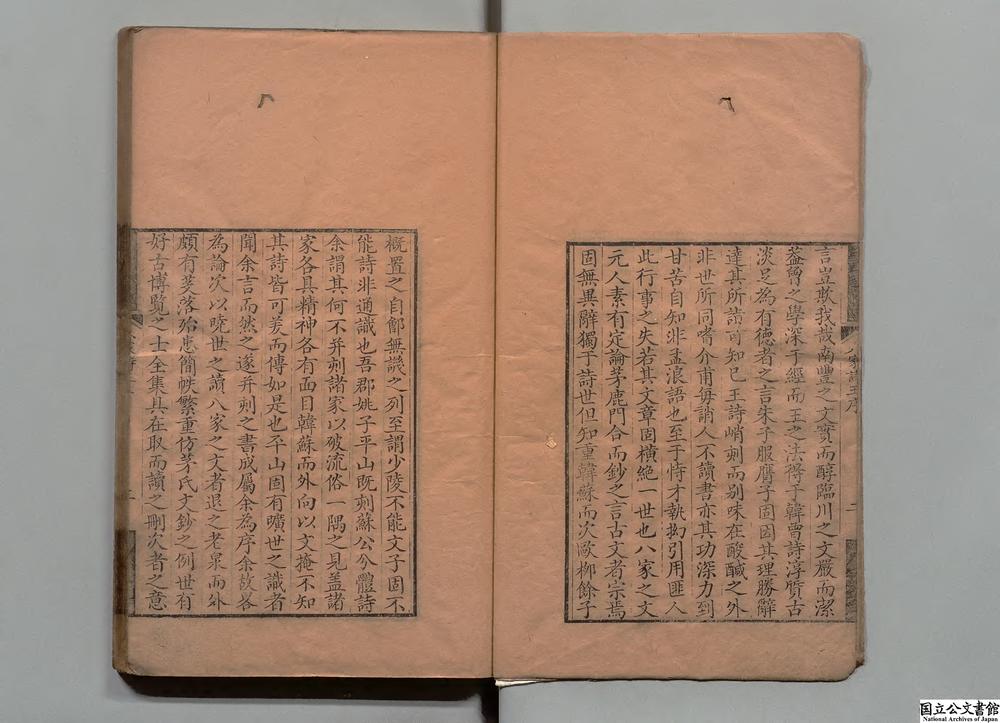 言豈欺我哉南豐之文實而醇臨川之文嚴而潔
葢曾之學深于經而王之法得于韓曾詩淳質古
淡足為有德者之言朱子服膺子固因其理勝辭
達其所詣可知已王詩峭刻而别味在酸醎之外
非世所同嗜介甫每誚人不讀書亦其功深力到
甘苦自知非孟浪語也至于恃才執拗引用匪人
此行事之失若其文章固橫絕一世也八家之文
元人素有定論茅鹿門合而鈔之言古文者宗焉
固無異辭獨于詩世但知重韓蘇而次歐柳餘子
概置之自鄶無譏之列至謂少陵不能文子固不
能詩非通識也吾郡姚子平山既刻蘇公分體詩
余謂其何不并刻諸家以破流俗一隅之見盖諸
家各具精神各有面目韓蘇而外向以文掩不知
其詩皆可爰而傳如是也平山固有曠世之識者
聞余言而然之遂并刻之書成屬余為序余故畧
為論次以曉世之讀八家之文者退之老泉而外
頗有芟落殆患簡帙繁重仿茅氏文鈔之例世有
好古博覽之士全集具在取而讀之刪次者之意
国立公文書館
National Archives of Japan